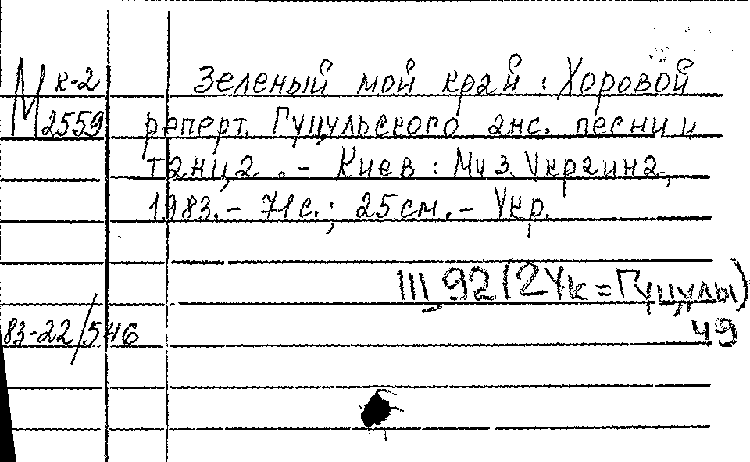 М к-2 Зеленый мой край : Хоровой
2559 реперт. Гуцульского анс. песни и
танца. - Киев : Муз. Украина,
1983. - 71 с. ; 25 см. - Укр.
III 92 (2Ук = Гуцулы)
83-22/546 49